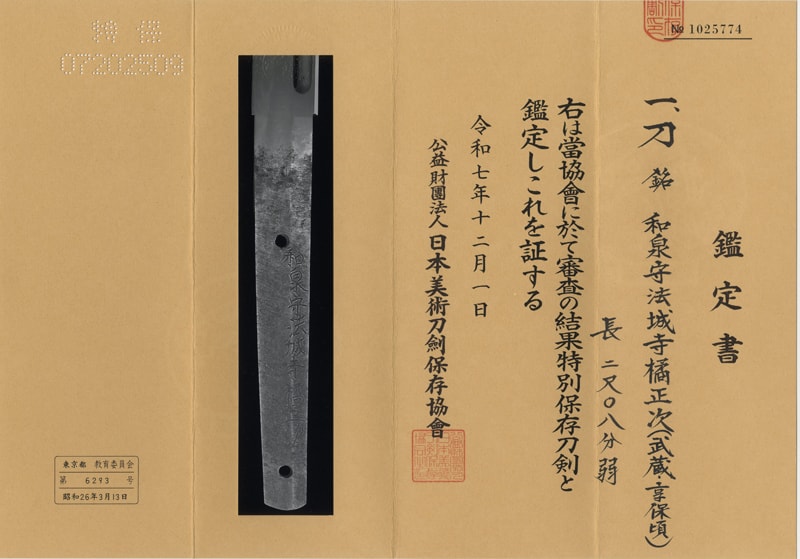 № 1025774
鑑定書
一、刀 銘 和泉守法城寺橘正次(武蔵・享保頃)
長 二尺〇八分弱
右は當協會に於て審査の結果特別保存刀剣と
鑑定しこれを証する
令和七年十二月一日
公益財團法人 日本美術刀劍保存協會
和泉守法城寺
特保
07202509
東京都 教育委員会
第 6293 号
昭和26年3月13日